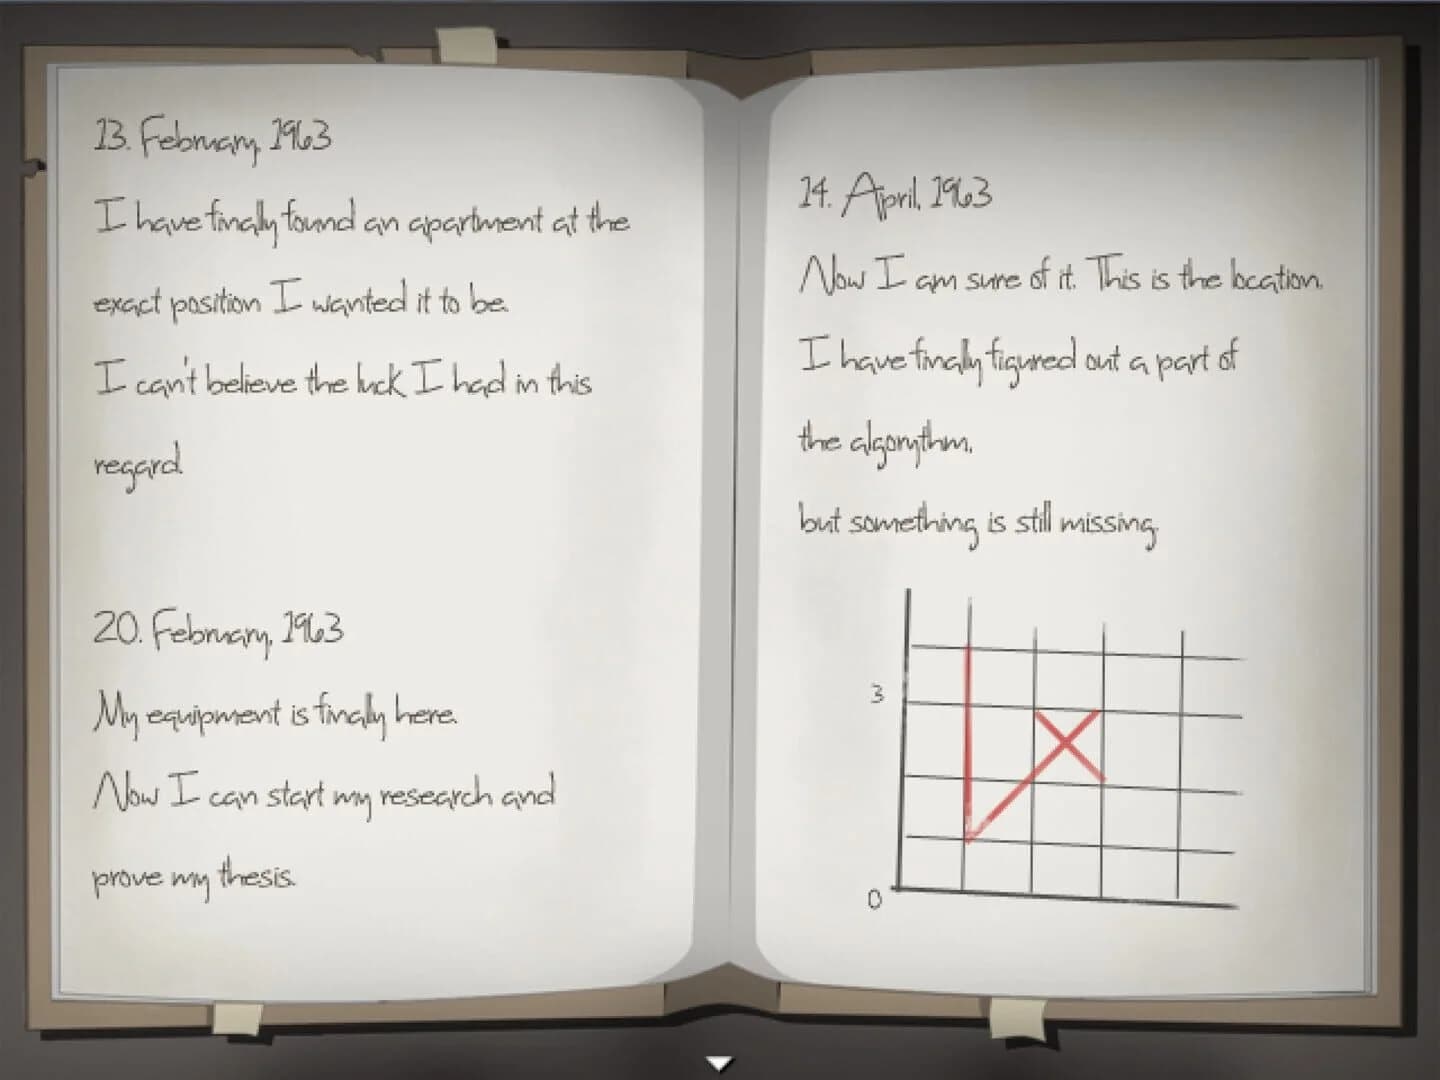 13. February, 1963
I have finally found an apartment at the
exact position I wanted it to be.
I can't believe the luck I had in this
regard.
20. February, 1963
My equipment is finally here.
Now I can start my research and
prove my thesis.
14. April, 1963
Now I am sure of it. This is the location.
I have finally figured out a part of
the algorythm,
but something is still missing.
3
0